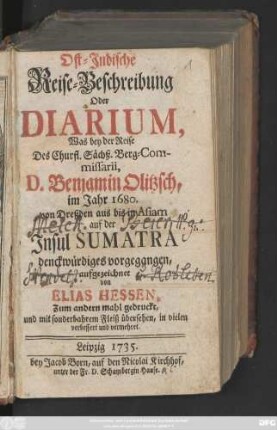 Ost-Indische
Reise-Beschreibung
Oder
DIARIUM,
Was bey der Reise
Des Churfl. Sächß. Berg-Com-
missarii,
D. Benjamin Olitzsch,
im Jahr 1680.
von Dreßden aus bis in Asiam
auf der
Insul SUMATRA
denckwürdiges vorgegangen,
aufgezeichnet
von
ELIAS HESSEN,
Zum andern mahl gedruckt,
und mit sonderbahrem Fleiß übersehen, in vielen
verbessert und vermehret.
Leipzig 1735.
bey Jacob Born, auf den Nicolai Kirchhof,
unter der Fr. D. Schambergin Hause.